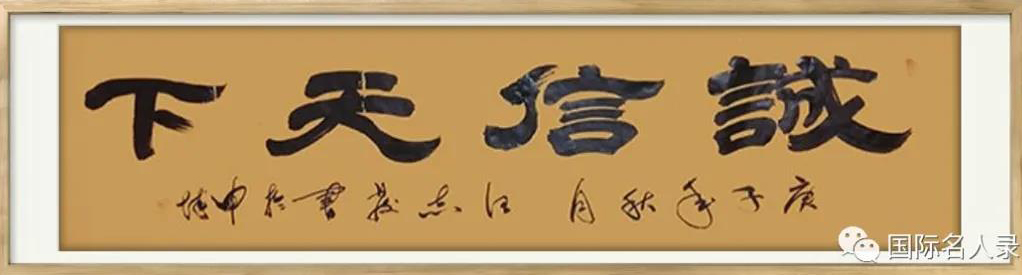 誠信天下
庚子年秋月 志書於申城
国际名人录